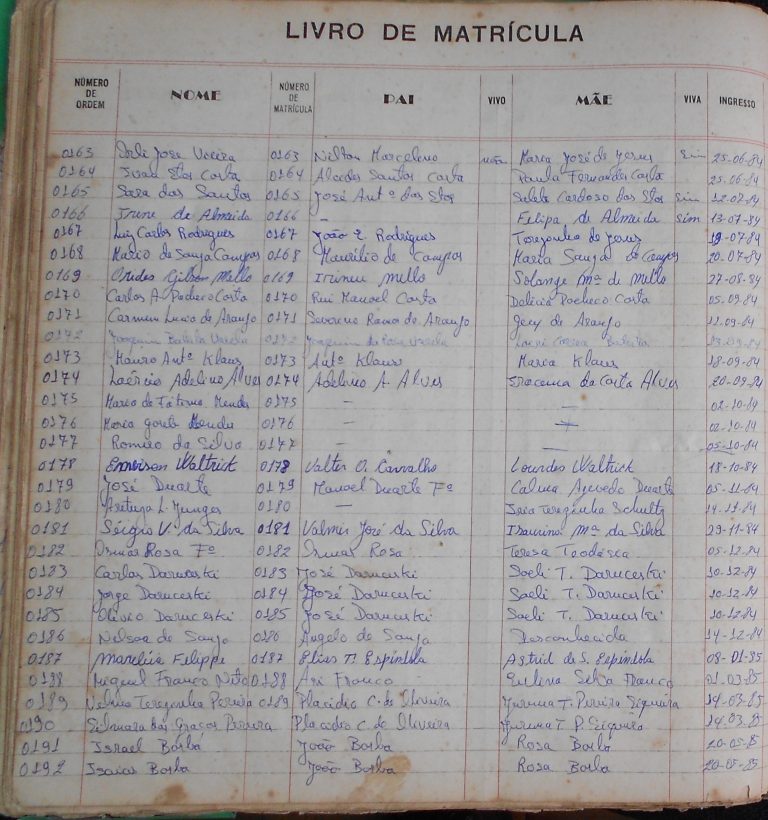 LIVRO DE MATRÍCULA
NÚMERO DE ORDEM NOME NÚMERO DE MATRÍCULA PAI VIVO MÃE VIVA INGRESSO
0163 José Vieira 0163 Nilton Marcelino Maria José de Jesus Sim 25-06-84
0164 Ivan Stos Costa 0164 Alcides Santos Costa Paula Fernandes Costa 25-06-84
0165 Sara dos Santos 0165 José Antº dos Stos Salete Cardoso dos Stos Sim 12-07-84
0166 Irene de Almeida 0166 - Felipa de Almeida sim 13-07-84
0167 Luiz Carlos Rodrigues 0167 João E. Rodrigues Terezinha de Jesus 19-07-84
0168 Marco de Souza Campos 0168 Maurilio de Campos Maria Souza de Campos 20-07-84
0169 Orides Gilson Mello 0169 Irineu Mello Solange Mª de Mello 27-08-84
0170 Carlos A. Pacheco Costa 0170 Rui Manoel Costa Delicia Pacheco Costa 05-09-84
0171 Carmem Lucia de Araujo 0171 Severino Ramo de Araujo Jecy de Araujo 11-09-84
0172 Joaquim Batista Varela 0172 Joaquim da Rosa Varela 13-09-84
0173 Mauro Antº Klaus 0173 Antº Klaus Maria Klaus 18-09-84
0174 Laércio Adelino Alves 0174 Adelino A. Alves Iracema da Costa Alves 20-09-84
0175 Maria de Fátima Mendes 0175 - - 02-10-84
0176 Maria goreti Mendes 0176 - - 02-10-84
0177 Romeu da Silva 0177 - - 05-10-84
0178 Emerson Waltrick 0178 Valter O. Carvalho Lourdes Waltrick 18-10-84
0179 José Duarte 0179 Manoel Duarte Fº Calma Azevedo Duarte 05-11-84
0180 L. Junges 0180 - Terezinha Schultz 14-11-84
0181 Sérgio V. da Silva 0181 Valmir José da Silva Isaurina Mª da Silva 29-11-84
0182 Osmar Rosa Fº 0182 Osmar Rosa Teresa Teodósia 05-12-84
0183 Carlos Daruceski 0183 José Daruceski Soeli T. Daruceski 10-12-84
0184 Jorge Daruceski 0184 José Daruceski Soeli T. Daruceski 10-12-84
0185 Olivio Daruceski 0185 José Daruceski Soeli T. Daruceski 10-12-84
0186 Nelson de Souza 0186 Angelo de Souza Desconhecida 14-12-84
0187 Marelúcia Filippe 0187 Elias Tº Espíndola Astrid de S. Espíndola 08-01-85
0188 Miguel Franco Neto 0188 Ari Franco Eulena Silva Franco 01-03-85
0189 Nelma Terezinha Pereira 0189 Placidio C. de Oliveira Jurema T. Pereira Siqueira 14-03-85
0190 Silmara das Graças Pereira Placidio C. de Oliveira Jurema T. P. Siqueira 14-03-85
0191 Israel Borba João Borba Rosa Borba 20-05-85
0192 Isaias Borba João Borba Rosa Borba 20-05-85